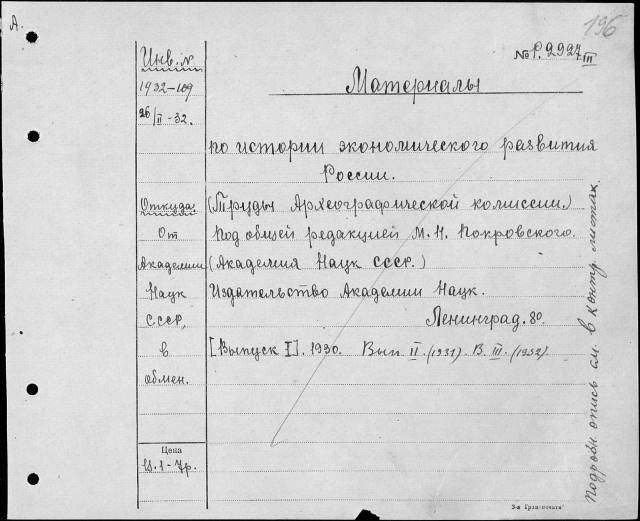 А.
196
№ Р.2927/III
Инв. №
1932-109
26/II-32.
Откуда
От
Академии
Наук
СССР,
в
обмен.
Цена
Материалы
по истории экономического развития
России.
(Труды Археографической комиссии.)
Под общей редакцией М. Н. Покровского.
(Академия Наук СССР.)
Издательство Академии Наук.
Ленинград. 8º.
[Выпуск I]. 1930. Вып. II. (1931). В. III. (1932).
Подробн. опись см. в контр. листах.